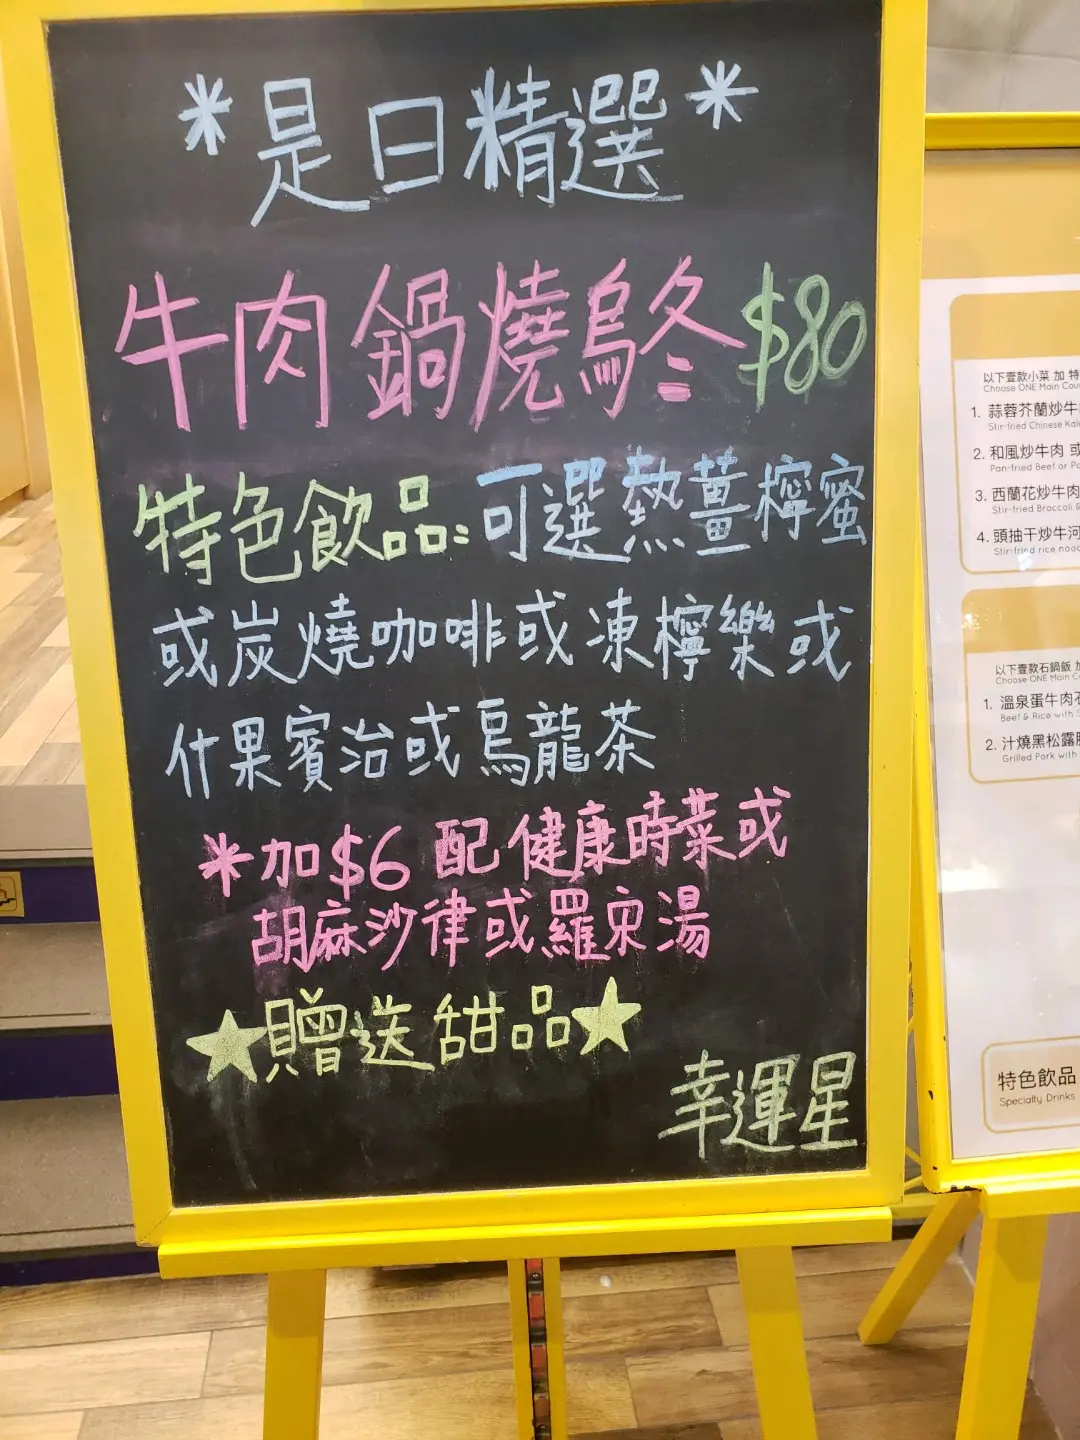 *是日精選*
牛肉鍋燒烏冬 $80
特色飲品:可選熱薑檸蜜
或炭燒咖啡或凍檸樂或
什果賓治或烏龍茶
*加$6 配健康時菜或
胡麻沙律或羅宋湯
★贈送甜品★
幸運星
以下壹款小菜 加 特
Choose ONE Main Cou
1. 蒜蓉芥蘭炒牛
Stir-fried Chinese Kal
2. 和風炒牛肉 或
Pan-fried Beef or Po
3. 西蘭花炒牛肉
Stir-fried Broccoli &
4. 頭抽干炒牛河
Stir-fried rice nood
以下壹款石鍋飯 加
Choose ONE Main C
1. 溫泉蛋牛肉石
Beef & Rice with S
2. 汁燒黑松露
Grilled Pork with
特色飲品
Specialty Drinks